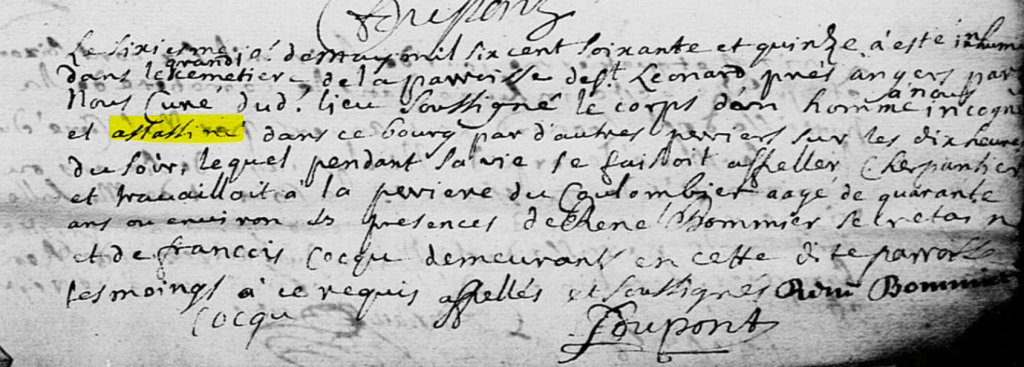 Dupont
Le sixiesme jo.r de may mil six cent soixante et quinze a esté inhumé
dans le grand cemetiere de la parroisse de s.t Leonard prés angers par
Nous Curé dud. lieu soussigné le corps d'un homme a nous incogneu
et assassiné dans ce bourg par d'autres perriers sur les dix heures
du soir, lequel pendant sa vie se faisoit appeller Cherpantier
et travailloit à la perriere du Coulombier aagé de quarante
ans ou environ és presences de Rene Bommier secretain
et de francois Cocqu demeurants en cette dite parroisse
tesmoings à ce requis appellés et soussignés René Bommier
Cocqu Dupont